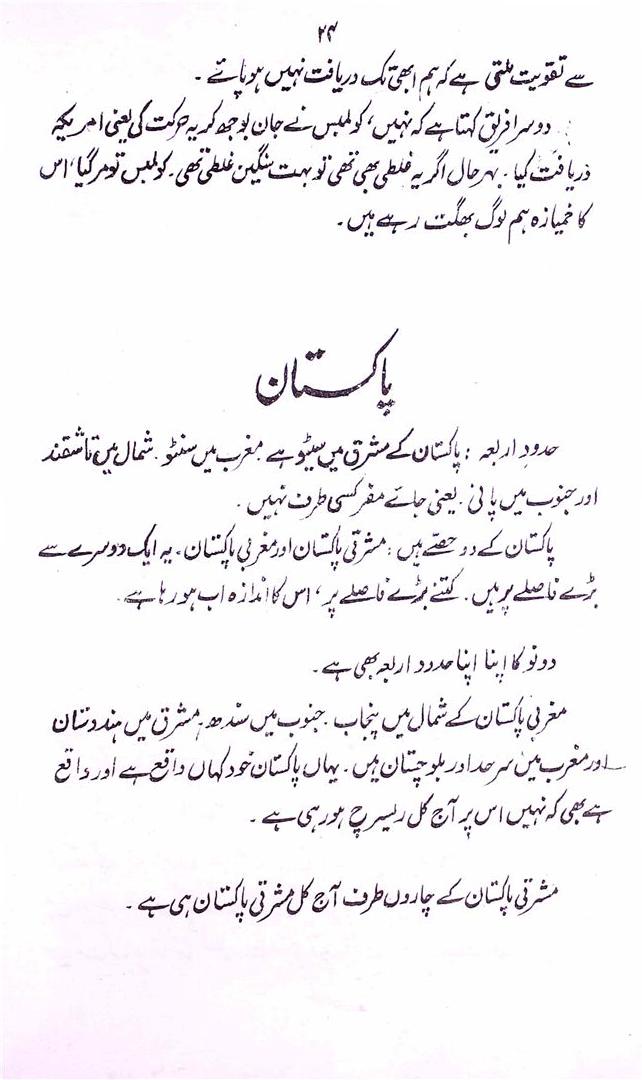 ۲۴
سے تقویت ملتی ہے کہ ہم ابھی تک دریافت نہیں ہو پائے ۔
دوسرا فریق کہتا ہے کہ نہیں، کولمبس نے جان بوجھ کر یہ حرکت کی یعنی امریکہ
دریافت کیا ۔ بہرحال اگر یہ غلطی بھی تھی تو بہت سنگین غلطی تھی ۔ کولمبس تو مر گیا، اس
کا خمیازہ ہم لوگ بھگت رہے ہیں ۔
پاکستان
حدودِ اربعہ : پاکستان کے مشرق میں سیٹو ہے مغرب میں سنٹو . شمال میں تاشقند
اور جنوب میں پانی . یعنی جائے مفر کسی طرف نہیں .
پاکستان کے دو حصّے ہیں : مشرقی پاکستان اور مغربی پاکستان ۔ یہ ایک دوسرے سے
بڑے فاصلے پر ہیں . کتنے بڑے فاصلے پر، اس کا اندازہ اب ہو رہا ہے .
دونو کا اپنا اپنا حدود اربعہ بھی ہے .
مغربی پاکستان کے شمال میں پنجاب . جنوب میں سندھ . مشرق میں ہندوستان
اور مغرب میں سرحد اور بلوچستان ہیں . یہاں پاکستان خود کہاں واقع ہے اور واقع
ہے بھی کہ نہیں اس پر آج کل ریسرچ ہو رہی ہے ۔
مشرقی پاکستان کے چاروں طرف آج کل مشرقی پاکستان ہی ہے ۔